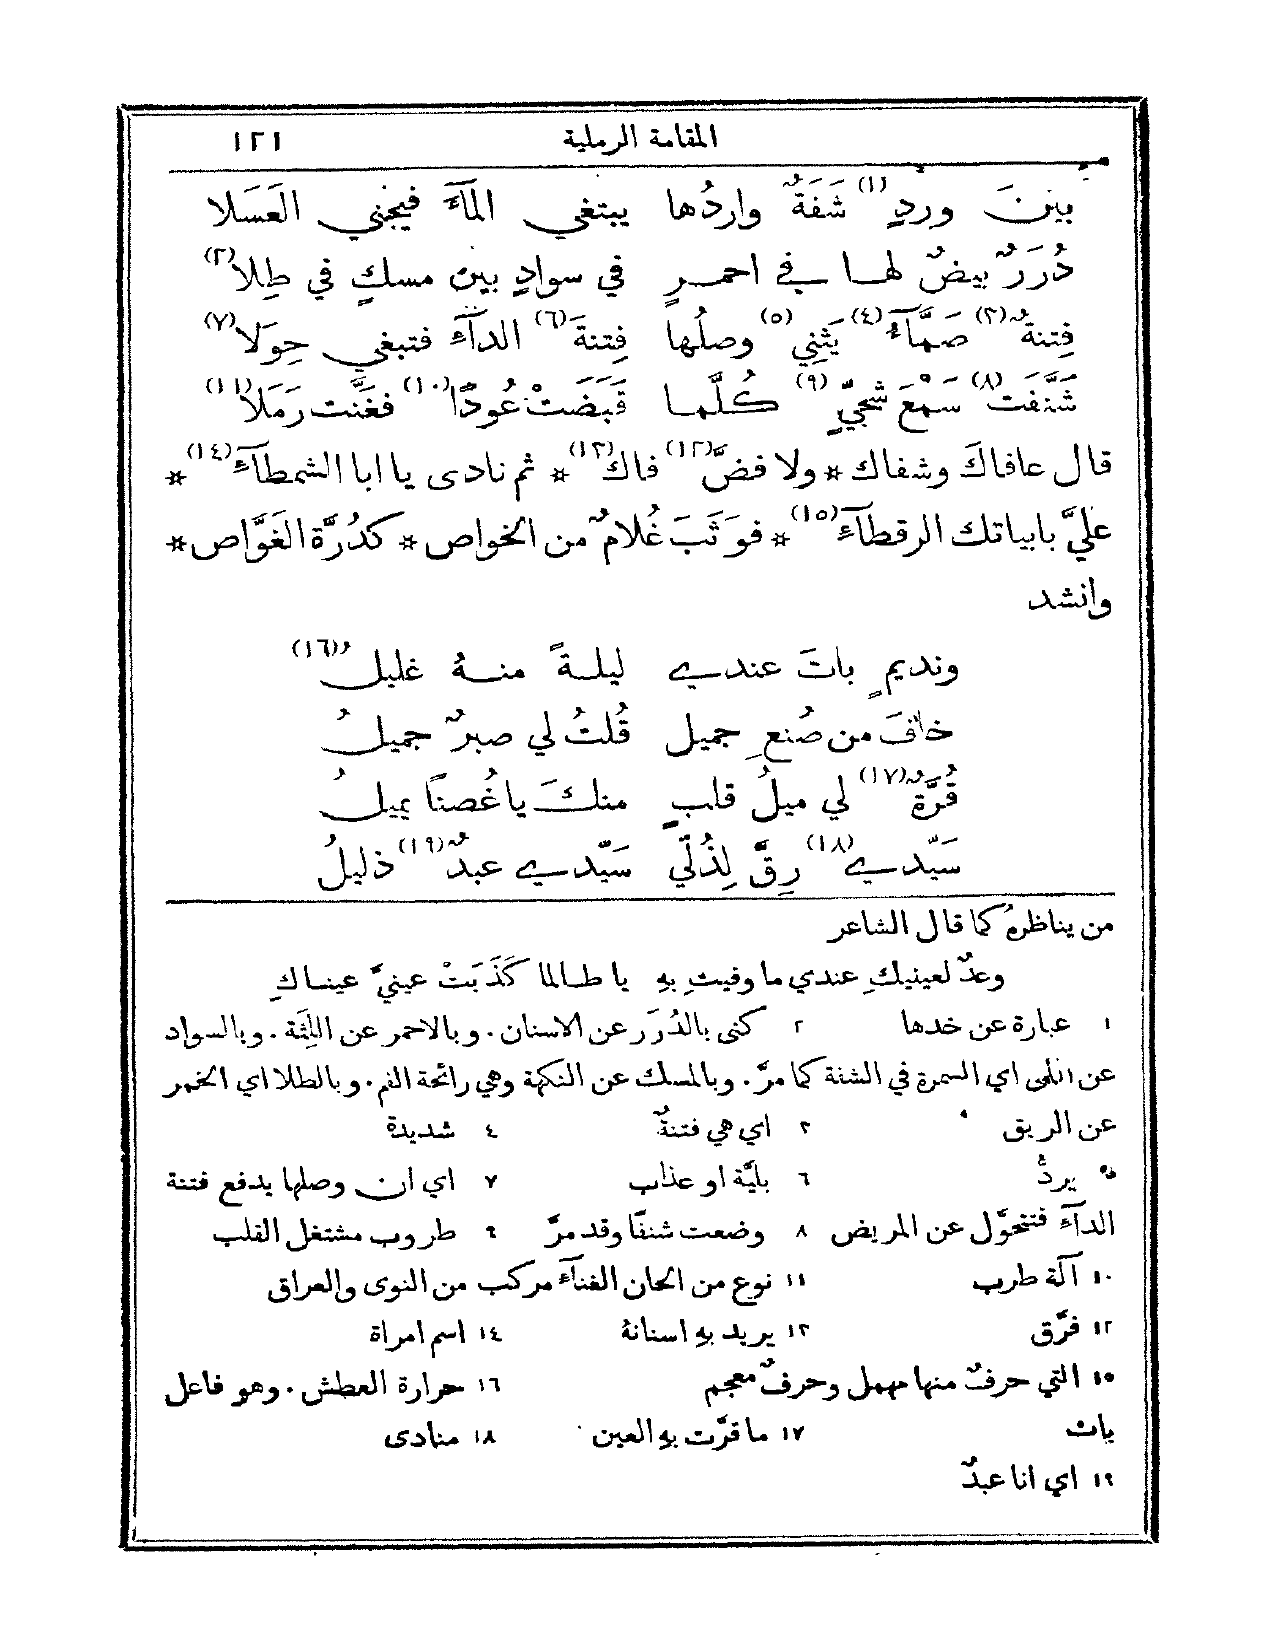 المقامة الرملية ١٢١
بينَ وردٍ(١) شَفَةٌ واردُها يبتغي المآءَ فيجني العَسَلا
دُرَرٌ بيضٌ لها في احمرٍ في سوادٍ بين مسكٍ في طِلا(٢)
فِتنةٌ(٣) صمَّآءُ(٤) يَثنِي(٥) وصلُها فِتنةَ(٦) الدآءَ فتبغي حِوَلا(٧)
شَنَّفَت(٨) سَمْعَ شَجِيٍّ(٩) كُلَّما قَبَضَتْ عُودًا(١٠) فغَنَّت رَمَلا(١١)
قال عافاكَ وشفاك * ولا فضَّ(١٢) فاك(١٣) * ثم نادى يا ابا الشمطآءِ(١٤) *
عليَّ بابياتك الرقطآءِ(١٥) * فوَثَبَ غُلامٌ من الخواص * كدُرَّة الغَوَّاص *
وانشد
ونديمٍ باتَ عندي ليلةً منهُ غليلُ(١٦)
خافَ من صُنعِ جميل قُلتُ لي صبرٌ جميلُ
قُرَّةٌ(١٧) لي ميلُ قلبٍ منكَ يا غُصنًا يميلُ
سَيّدي(١٨) رِقَّ لِذُلّي سَيّدي عبدٌ(١٩) ذليلُ
من يناظرهُ كما قال الشاعر
وعدٌ لعينيكِ عندي ما وفيتِ بهِ يا طالما كَذَبَتْ عينيَّ عيناكِ
١ عبارة عن خدها ٢ كنى بالدُرَر عن الاسنان. وبالاحمر عن اللِثَة. وبالسواد
عن اللمى اي السمرة في الشفة كما مرَّ. وبالمسك عن النكهة وهي رائحة الفم. وبالطلا اي الخمر
عن الريق ٣ اي هي فتنةٌ ٤ شديدة
٥ يردُّ ٦ بليَّة او عذاب ٧ اي ان وصلها يدفع فتنة
الدآءَ فتتحوَّل عن المريض ٨ وضعت شنفًا وقد مرَّ ٩ طروب مشتغل القلب
١٠ آلة طرب ١١ نوع من الحان الغنآء مركب من النوى والعراق
١٢ فرَّق ١٣ يريد بهِ اسنانهُ ١٤ اسم امراة
١٥ التي حرفٌ منها مهمل وحرفٌ معجم ١٦ حرارة العطش. وهو فاعل
بات ١٧ ما قرَّت بهِ العين ١٨ منادى
١٩ اي انا عبدٌ